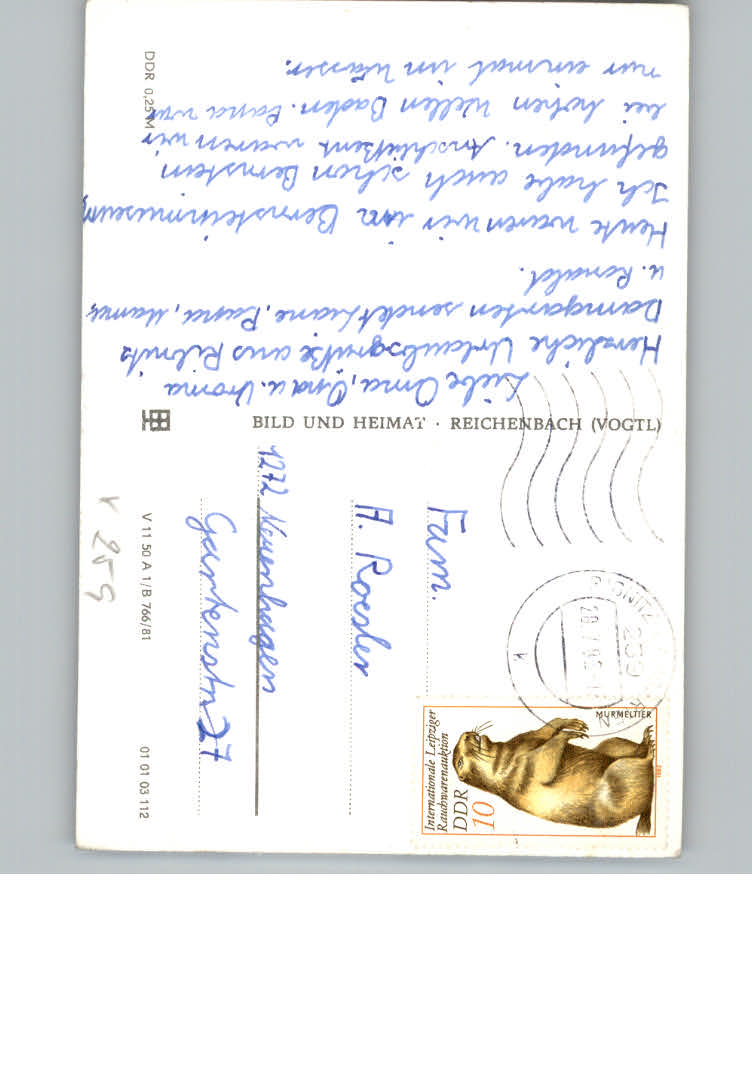 Liebe Oma, Opa u. Uroma
Herzliche Urlaubsgrüße aus Ribnitz
Damgarten sendet Liane, Papa, Mama
u. Ronald.
Heute waren wir im Bernsteinmuseum
Ich habe auch schon Bernstein
gefunden. Anschließent waren wir
bei hohen Wellen Baden. Papa war
nur einmal im Wasser.
DDR 0,25 M
BILD UND HEIMAT · REICHENBACH (VOGTL)
V 11 50 A 1/B 766/81
01 01 03 112
V 259
Fam.
A. Roesler
1272 Neuenhagen
Gartenstr 27
RIBNITZ
259
28.7.8
Internationale Leipziger
Rauchwarenauktion
DDR
10
MURMELTIER
1982